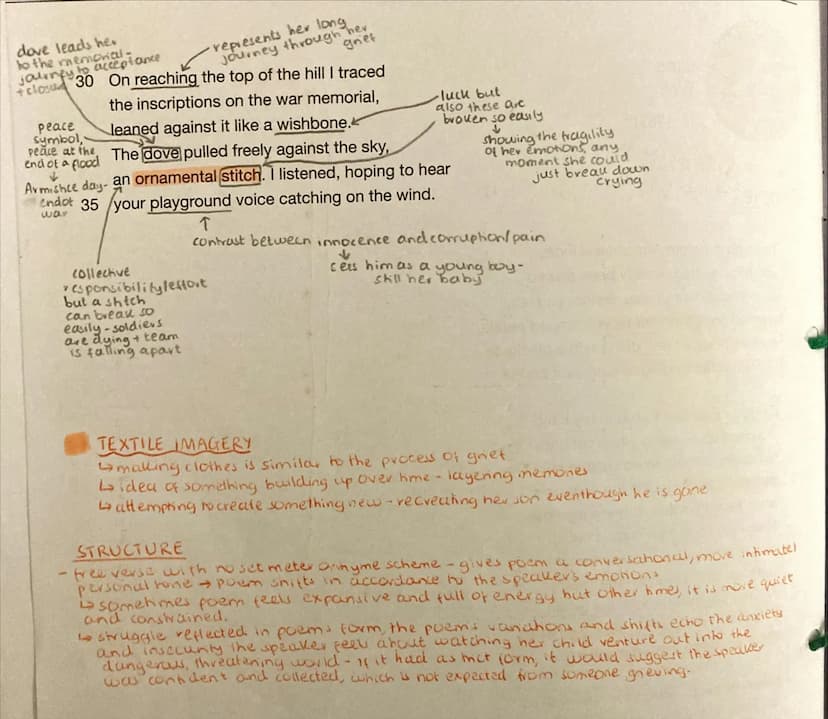 dove leads her
to the memorial -
journey to acceptance
+ closure
represents her long
journey through her
grief
30 On reaching the top of the hill I traced
the inscriptions on the war memorial,
leaned against it like a wishbone.
The dove pulled freely against the sky,
an ornamental stitch. I listened, hoping to hear
35 your playground voice catching on the wind.
luck but
also these are
broken so easily
↓
showing the fragility
of her emotions, any
moment she could
just break down
crying
peace
symbol,
peace at the
end of a flood
↓
Armistice day -
end of
war
contrast between innocence and corruption/pain
↓
sees him as a young boy -
still her baby
collective
responsibility/effort
but a stitch
can break so
easily - soldiers
are dying + team
is falling apart
TEXTILE IMAGERY
↳ making clothes is similar to the process of grief
↳ idea of something building up over time - layering memories
↳ attempting to create something new - recreating her son eventhough he is gone
STRUCTURE
- free verse with no set meter or rhyme scheme - gives poem a conversational, more intimate/
personal tone → poem shifts in accordance to the speaker's emotions
↳ sometimes poem feels expansive and full of energy but other times, it is more quiet
and constrained.
↳ struggle reflected in poems form, the poems variations and shifts echo the anxiety
and insecurity the speaker feels about watching her child venture out into the
dangerous, threatening world - if it had a strict form, it would suggest the speaker
was confident and collected, which is not expected from someone grieving.